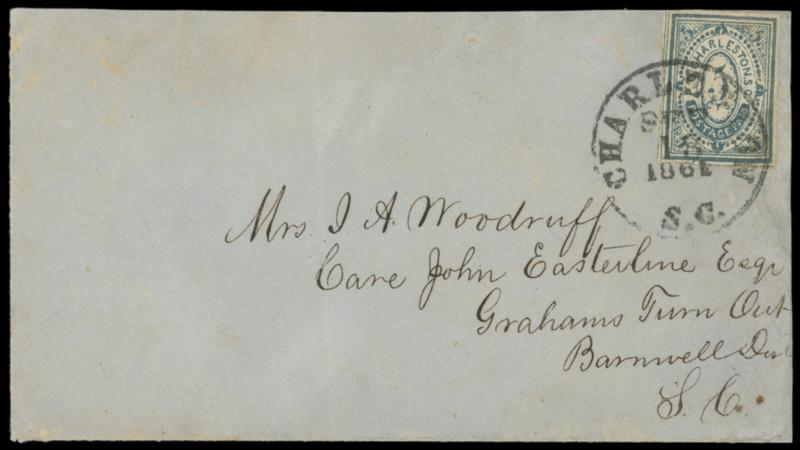 CHARLESTON, S.C.
5
CTS
POSTAGE PAID
CHARLESTON
1861
S.C.
Mrs. J A. Woodruff
Care John Easterline Esqr
Grahams Turn Out
Barnwell Dis
S. C.